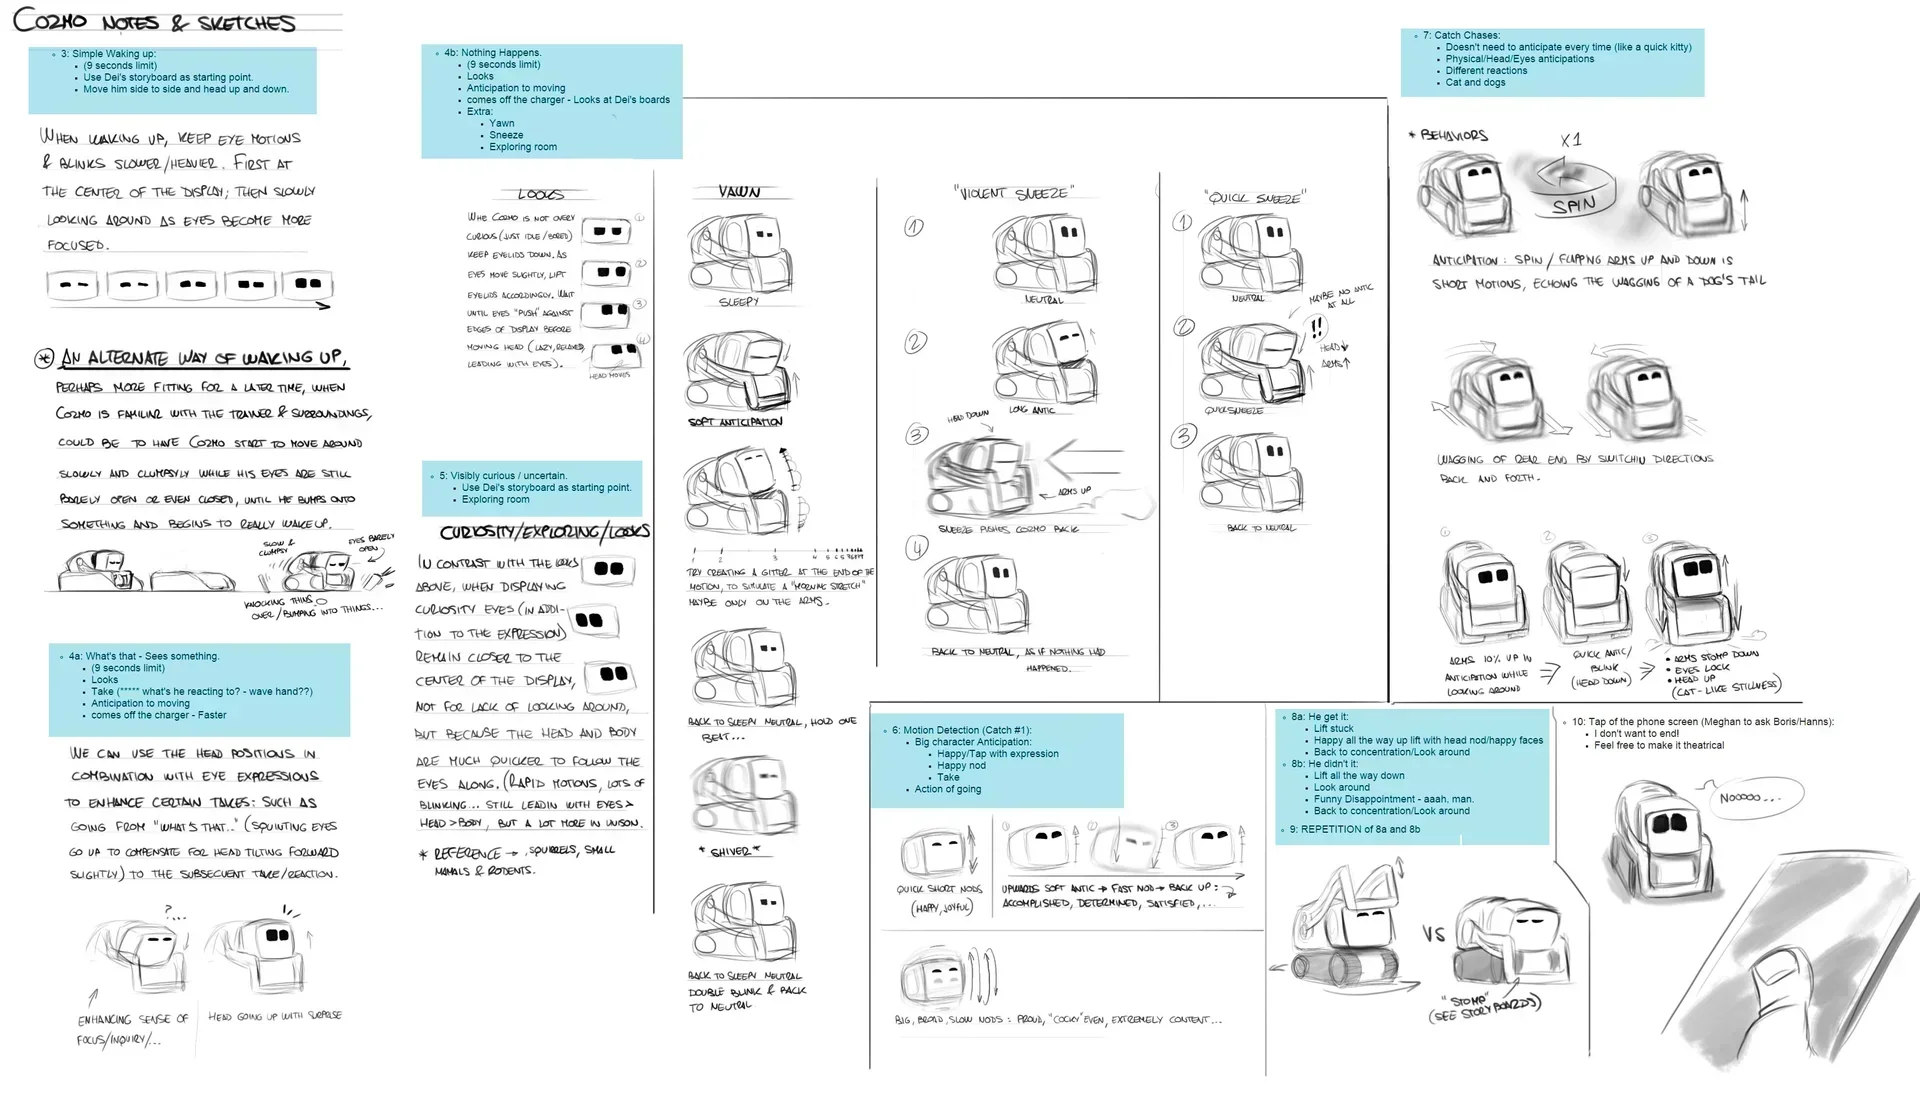 COZMO NOTES & SKETCHES
3: Simple Waking up:
(9 seconds limit)
Use Dei's storyboard as starting point.
Move him side to side and head up and down.
WHEN WAKING UP, KEEP EYE MOTIONS
& BLINKS SLOWER/HEAVIER. FIRST AT
THE CENTER OF THE DISPLAY; THEN SLOWLY
LOOKING AROUND AS EYES BECOME MORE
FOCUSED.
* AN ALTERNATE WAY OF WAKING UP,
PERHAPS MORE FITTING FOR A LATER TIME, WHEN
COZMO IS FAMILIAR WITH THE TRAINER & SURROUNDINGS,
COULD BE TO HAVE COZMO START TO MOVE AROUND
SLOWLY AND CLUMPSYLY WHILE HIS EYES ARE STILL
BARELY OPEN OR EVEN CLOSED, UNTIL HE BUMPS ONTO
SOMETHING AND BEGINS TO REALLY WAKE UP.
SLOW &
CLUMPSY
EYES BARELY
OPEN
KNOCKING THINGS
OVER/BUMPING INTO THINGS...
4a: What's that - Sees something.
(9 seconds limit)
Looks
Take (***** what's he reacting to? - wave hand??)
Anticipation to moving
comes off the charger - Faster
WE CAN USE THE HEAD POSITIONS IN
COMBINATION WITH EYE EXPRESSIONS
TO ENHANCE CERTAIN TAKES: SUCH AS
GOING FROM "WHAT'S THAT..." (SQUINTING EYES
GO UP TO COMPENSATE FOR HEAD TILTING FORWARD
SLIGHTLY) TO THE SUBSECUENT TAKE/REACTION.
?...
!!
ENHANCING SENSE OF
FOCUS/INQUIRY/...
HEAD GOING UP WITH SURPRISE
4b: Nothing Happens.
(9 seconds limit)
Looks
Anticipation to moving
comes off the charger - Looks at Dei's boards
Extra:
Yawn
Sneeze
Exploring room
LOOKS
WHE COZMO IS NOT OVERY
CURIOUS (JUST IDLE/BORED)
KEEP EYELIDS DOWN. AS
EYES MOVE SLIGHTLY, LIFT
EYELIDS ACCORDINGLY. WAIT
UNTIL EYES "PUSH" AGAINST
EDGES OF DISPLAY BEFORE
MOVING HEAD (LAZY, RELAXED,
LEADING WITH EYES).
1
2
3
4
HEAD MOVES
5: Visibly curious / uncertain.
Use Dei's storyboard as starting point.
Exploring room
CURIOSITY/EXPLORING/LOOKS
IN CONTRAST WITH THE LOOKS
ABOVE, WHEN DISPLAYING
CURIOSITY EYES (IN ADDI-
TION TO THE EXPRESSION)
REMAIN CLOSER TO THE
CENTER OF THE DISPLAY,
NOT FOR LACK OF LOOKING AROUND,
BUT BECAUSE THE HEAD AND BODY
ARE MUCH QUICKER TO FOLLOW THE
EYES ALONG. (RAPID MOTIONS, LOTS OF
BLINKING... STILL LEADIN WITH EYES >
HEAD > BODY, BUT A LOT MORE IN UNISON.
* REFERENCE → SQUIRRELS, SMALL
MAMALS & RODENTS.
YAWN
SLEEPY
SOFT ANTICIPATION
1 2 3 4 5 6
TRY CREATING A GITTER AT THE END OF THE
MOTION, TO SIMULATE A "MORNING STRETCH"
MAYBE ONLY ON THE ARMS.
BACK TO SLEEPY NEUTRAL, HOLD ONE
BEAT...
* SHIVER *
BACK TO SLEEPY NEUTRAL
DOUBLE BLINK & BACK
TO NEUTRAL
"VIOLENT SNEEZE"
1
NEUTRAL
2
LONG ANTIC
3
HEAD DOWN
ARMS UP
SNEEZE PUSHES COZMO BACK
4
BACK TO NEUTRAL, AS IF NOTHING HAD
HAPPENED.
"QUICK SNEEZE"
1
NEUTRAL
MAYBE NO ANTIC
AT ALL
2
!!
HEAD ↓
ARMS ↑
QUICK SNEEZE
3
BACK TO NEUTRAL
6: Motion Detection (Catch #1):
Big character Anticipation:
Happy/Tap with expression
Happy nod
Take
Action of going
QUICK SHORT NODS
(HAPPY, JOYFUL)
1
2
3
UPWARDS SOFT ANTIC → FAST NOD → BACK UP:
ACCOMPLISHED, DETERMINED, SATISFIED,...
BIG, BROAD, SLOW NODS: PROUD, "COCKY" EVEN, EXTREMELY CONTENT...
7: Catch Chases:
Doesn't need to anticipate every time (like a quick kitty)
Physical/Head/Eyes anticipations
Different reactions
Cat and dogs
* BEHAVIORS
X1
SPIN
ANTICIPATION: SPIN/FLAPPING ARMS UP AND DOWN IS
SHORT MOTIONS, ECHOING THE WAGGING OF A DOG'S TAIL
WAGGING OF REAR END BY SWITCHIN DIRECTIONS
BACK AND FORTH.
1
2
3
ARMS 10% UP IN
ANTICIPATION WHILE
LOOKING AROUND
QUICK ANTIC/
BLINK
(HEAD DOWN)
• ARMS STOMP DOWN
• EYES LOCK
• HEAD UP
(CAT-LIKE STILLNESS)
8a: He get it:
Lift stuck
Happy all the way up lift with head nod/happy faces
Back to concentration/Look around
8b: He didn't it:
Lift all the way down
Look around
Funny Disappointment - aaah, man.
Back to concentration/Look around
9: REPETITION of 8a and 8b
VS
"STOMP"
(SEE STORYBOARDS)
10: Tap of the phone screen (Meghan to ask Boris/Hanns):
I don't want to end!
Feel free to make it theatrical
NOOOOO...